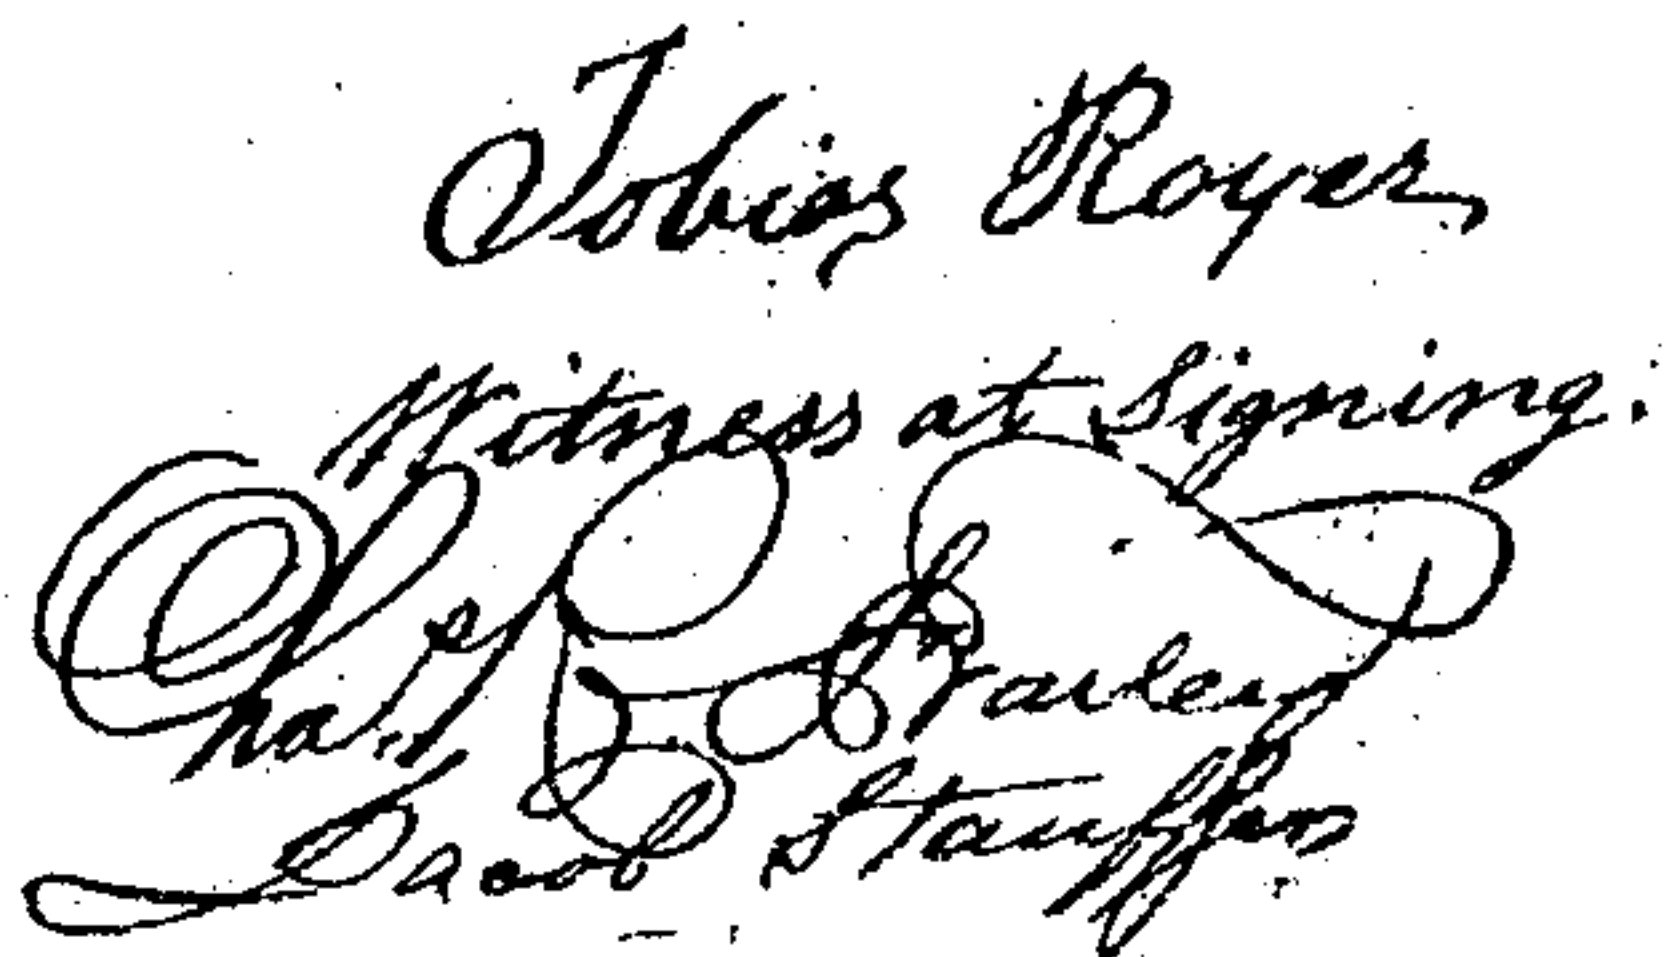 Tobias Royer
Witness at Signing.
Chas
Jacob Stauffer